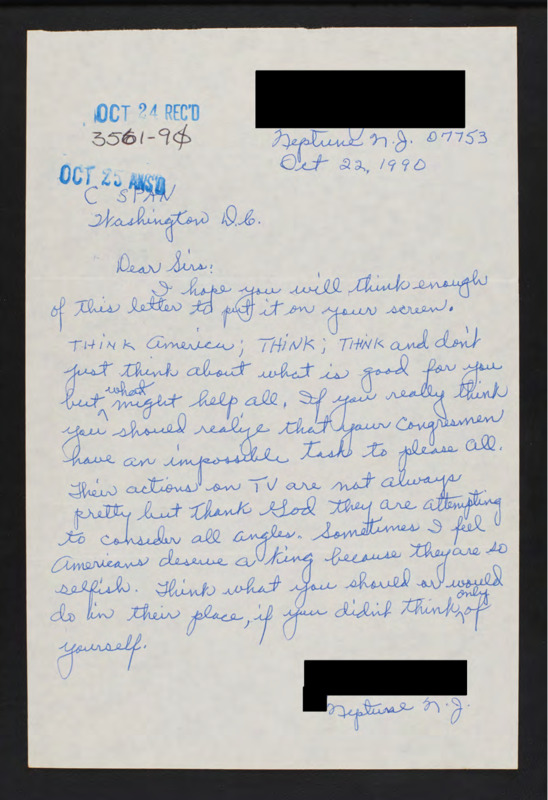 OCT 24 REC'D
3561-90
Neptune N.J. 07753
Oct 22, 1990
OCT 25 ANS'D
C SPAN
Washington D.C.
Dear Sirs:
I hope you will think enough
of this letter to put it on your screen.
THINK America; THINK; THINK and don't
just think about what is good for you
but what might help all. If you really think
you should realize that your Congresmen
have an impossible task to please all.
Their actions on TV are not always
pretty but thank God they are attempting
to consider all angles. Sometimes I feel
Americans deserve a King because they are so
selfish. Think what you should or would
do in their place, if you didn't think only of
yourself.
Neptune N.J.